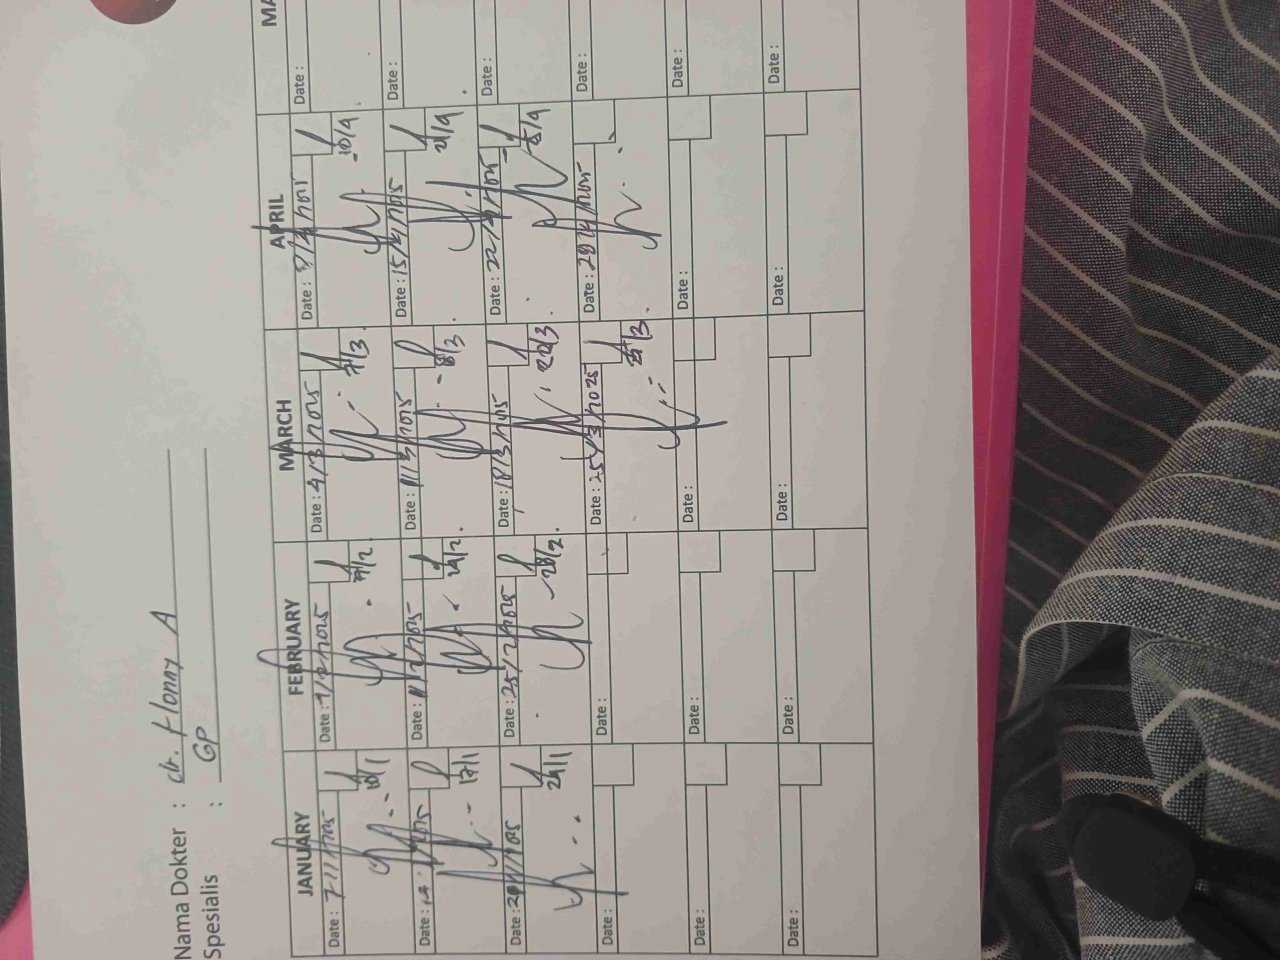 Nama Dokter : dr. Honny A
Spesialis : GP
JANUARY FEBRUARY MARCH APRIL MA
Date : 7/1/2025 Date : 7/2/2025 Date : 4/3/2025 Date : 8/4/2025 Date :
10/1 7/2 7/3 10/4
Date : Date : 11/2/2025 Date : 11/3/2025 Date : 15/4/2025 Date :
17/1 14/2 21/4
Date : Date : 25/2/2025 Date : 18/3/2025 Date : 22/4/2025 Date :
24/1 28/2 22/3 25/4
Date : Date : Date : 25/3/2025 Date : 29/4/2025 Date :
Date : Date : Date : Date : Date :
Date : Date : Date : Date : Date :